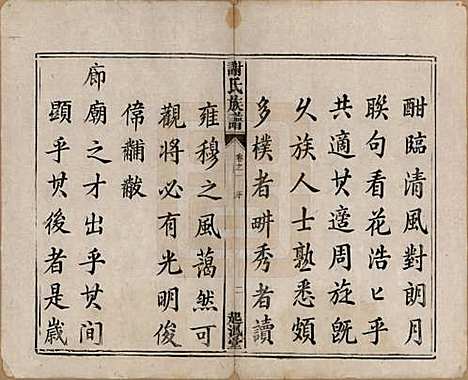 酣臨清風對朗月
聯句看花浩匕乎
共適其適周旋既
久族人士熟悉頗
多樸者畊秀者讀
謝氏族譜
卷之一
序
二
起渭堂
雍穆之風藹然可
觀將必有光明俊
偉黼黻
廊廟之才出乎其間
顯乎其後者是歲